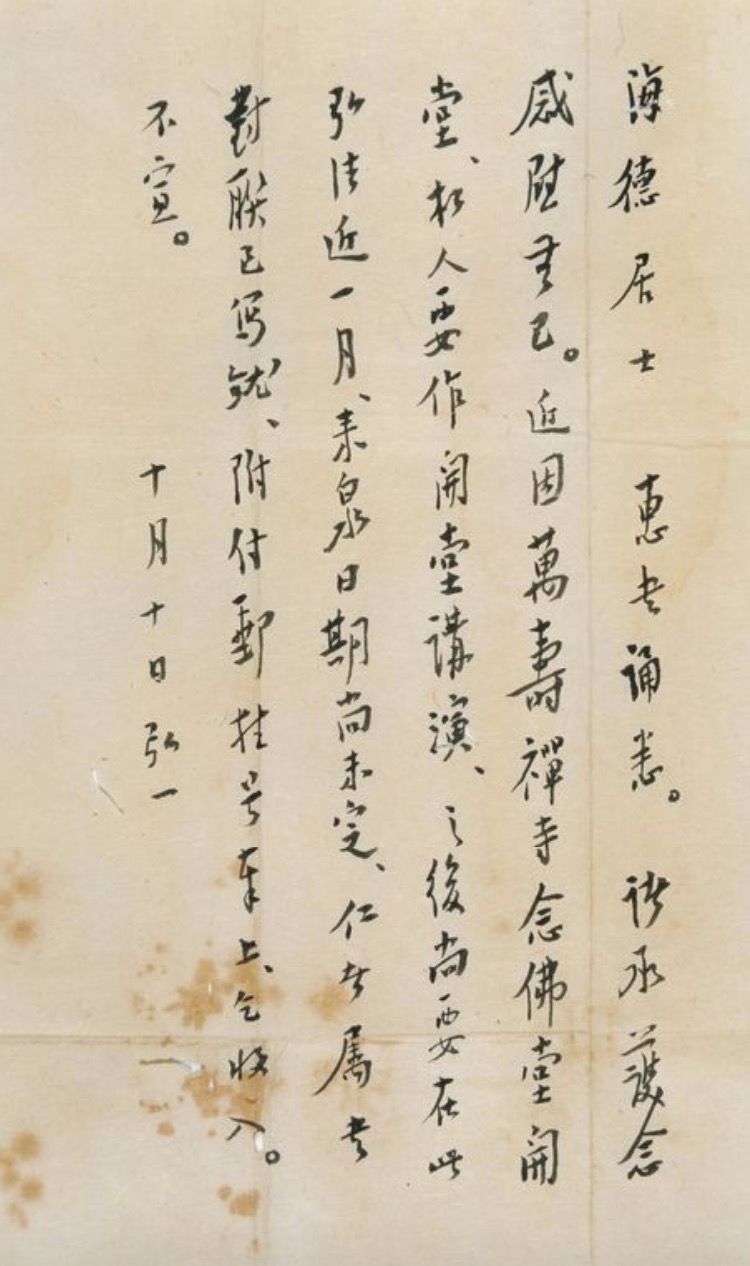 海德居士 惠书诵悉。 諸承護念
感慰無已。近因萬壽禪寺念佛堂開
堂、朽人要作開堂講演、之後尚要在此
弘法近一月、来泉日期尚未定、仁者属書
對聯已写就、附付郵挂号奉上、乞收入。
不宣。 十月十日 弘一